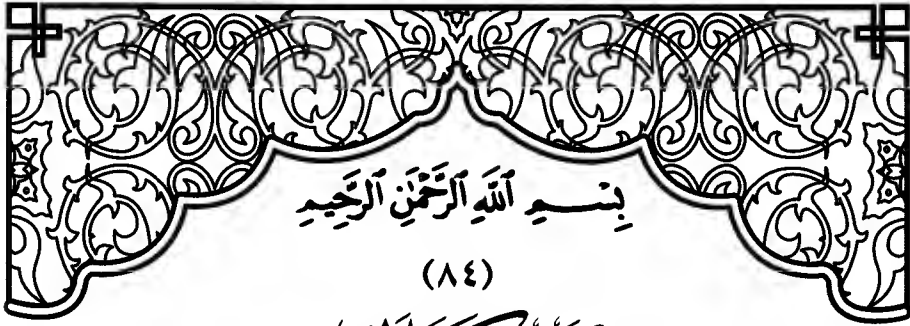 بِسْمِ ٱللَّهِ ٱلرَّحْمَٰنِ ٱلرَّحِيمِ
(٨٤)